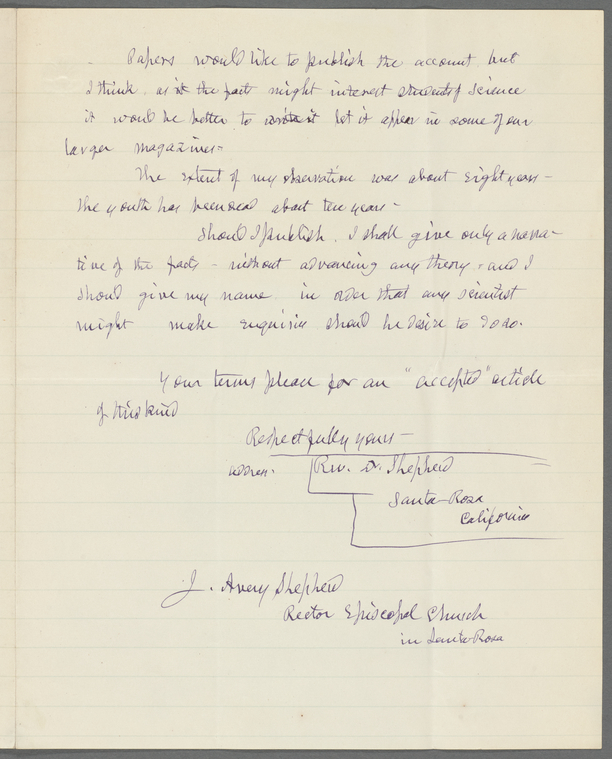 Papers would like to publish the account but
I think, as the facts might interest students of science
it would be better to let it appear in some of our
larger magazines-
The extent of my observation was about eight years-
the youth has been dead about ten years-
Should I publish, I shall give only a narra-
tive of the facts - without advancing any theory - and I
should give my name in order that any scientist
might make enquiries should he desire to do so.
Your terms please for an "accepted" article
of this kind
Respectfully yours-
address. Rev. Dr. Shepherd
Santa-Rosa
California
J. Avery Shepherd
Rector Episcopal Church
in Santa-Rosa